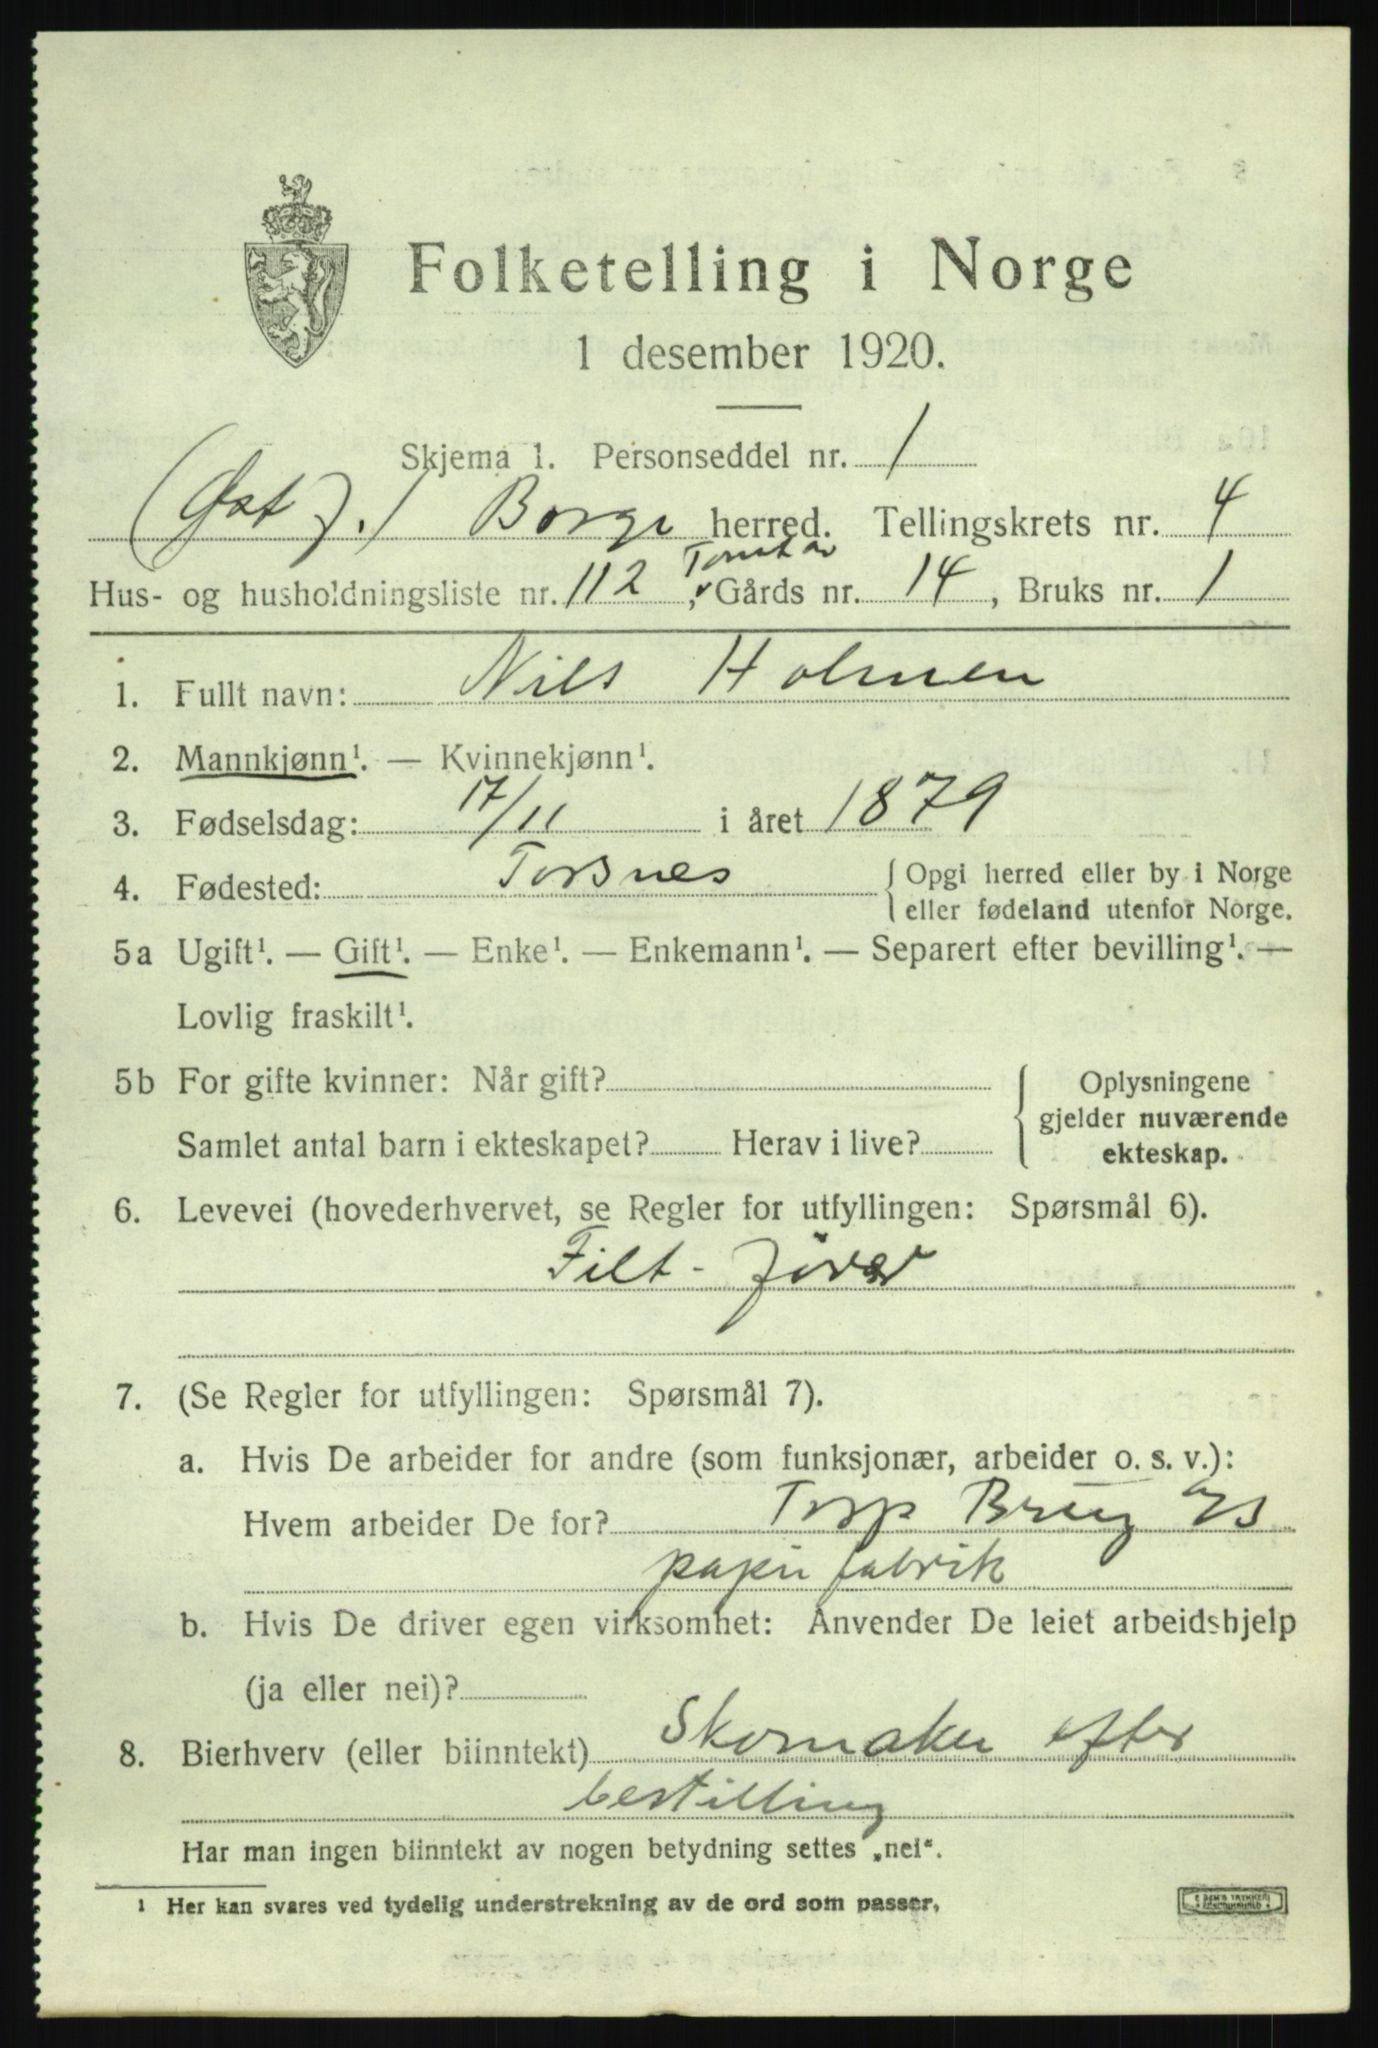 Folketelling i Norge
1 desember 1920.
Skjema 1. Personseddel nr. 1
(Østf.) Borge herred. Tellingskrets nr. 4
Tomt av
Hus- og husholdningsliste nr. 112, Gårds nr. 14, Bruks nr. 1
1. Fullt navn: Nils Holmen
2. Mannkjønn¹. — Kvinnekjønn¹.
3. Fødselsdag: 17/11 i året 1879
4. Fødested: Torsnes { Opgi herred eller by i Norge
eller fødeland utenfor Norge.
5a Ugift¹. — Gift¹. — Enke¹. — Enkemann¹. — Separert efter bevilling¹. —
Lovlig fraskilt¹.
5b For gifte kvinner: Når gift? { Oplysningene
gjelder nuværende
Samlet antal barn i ekteskapet? Herav i live?
ekteskap.
6. Levevei (hovederhvervet, se Regler for utfyllingen: Spørsmål 6).
Filt-
7. (Se Regler for utfyllingen: Spørsmål 7).
a. Hvis De arbeider for andre (som funksjonær, arbeider o. s. v.):
Hvem arbeider De for? Torp Brug
papirfabrik
b. Hvis De driver egen virksomhet: Anvender De leiet arbeidshjelp
(ja eller nei)?
8. Bierhverv (eller biinntekt) Skomaker efter
bestilling
Har man ingen biinntekt av nogen betydning settes „nei“.
¹ Her kan svares ved tydelig understrekning av de ord som passer.